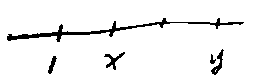 1 x y